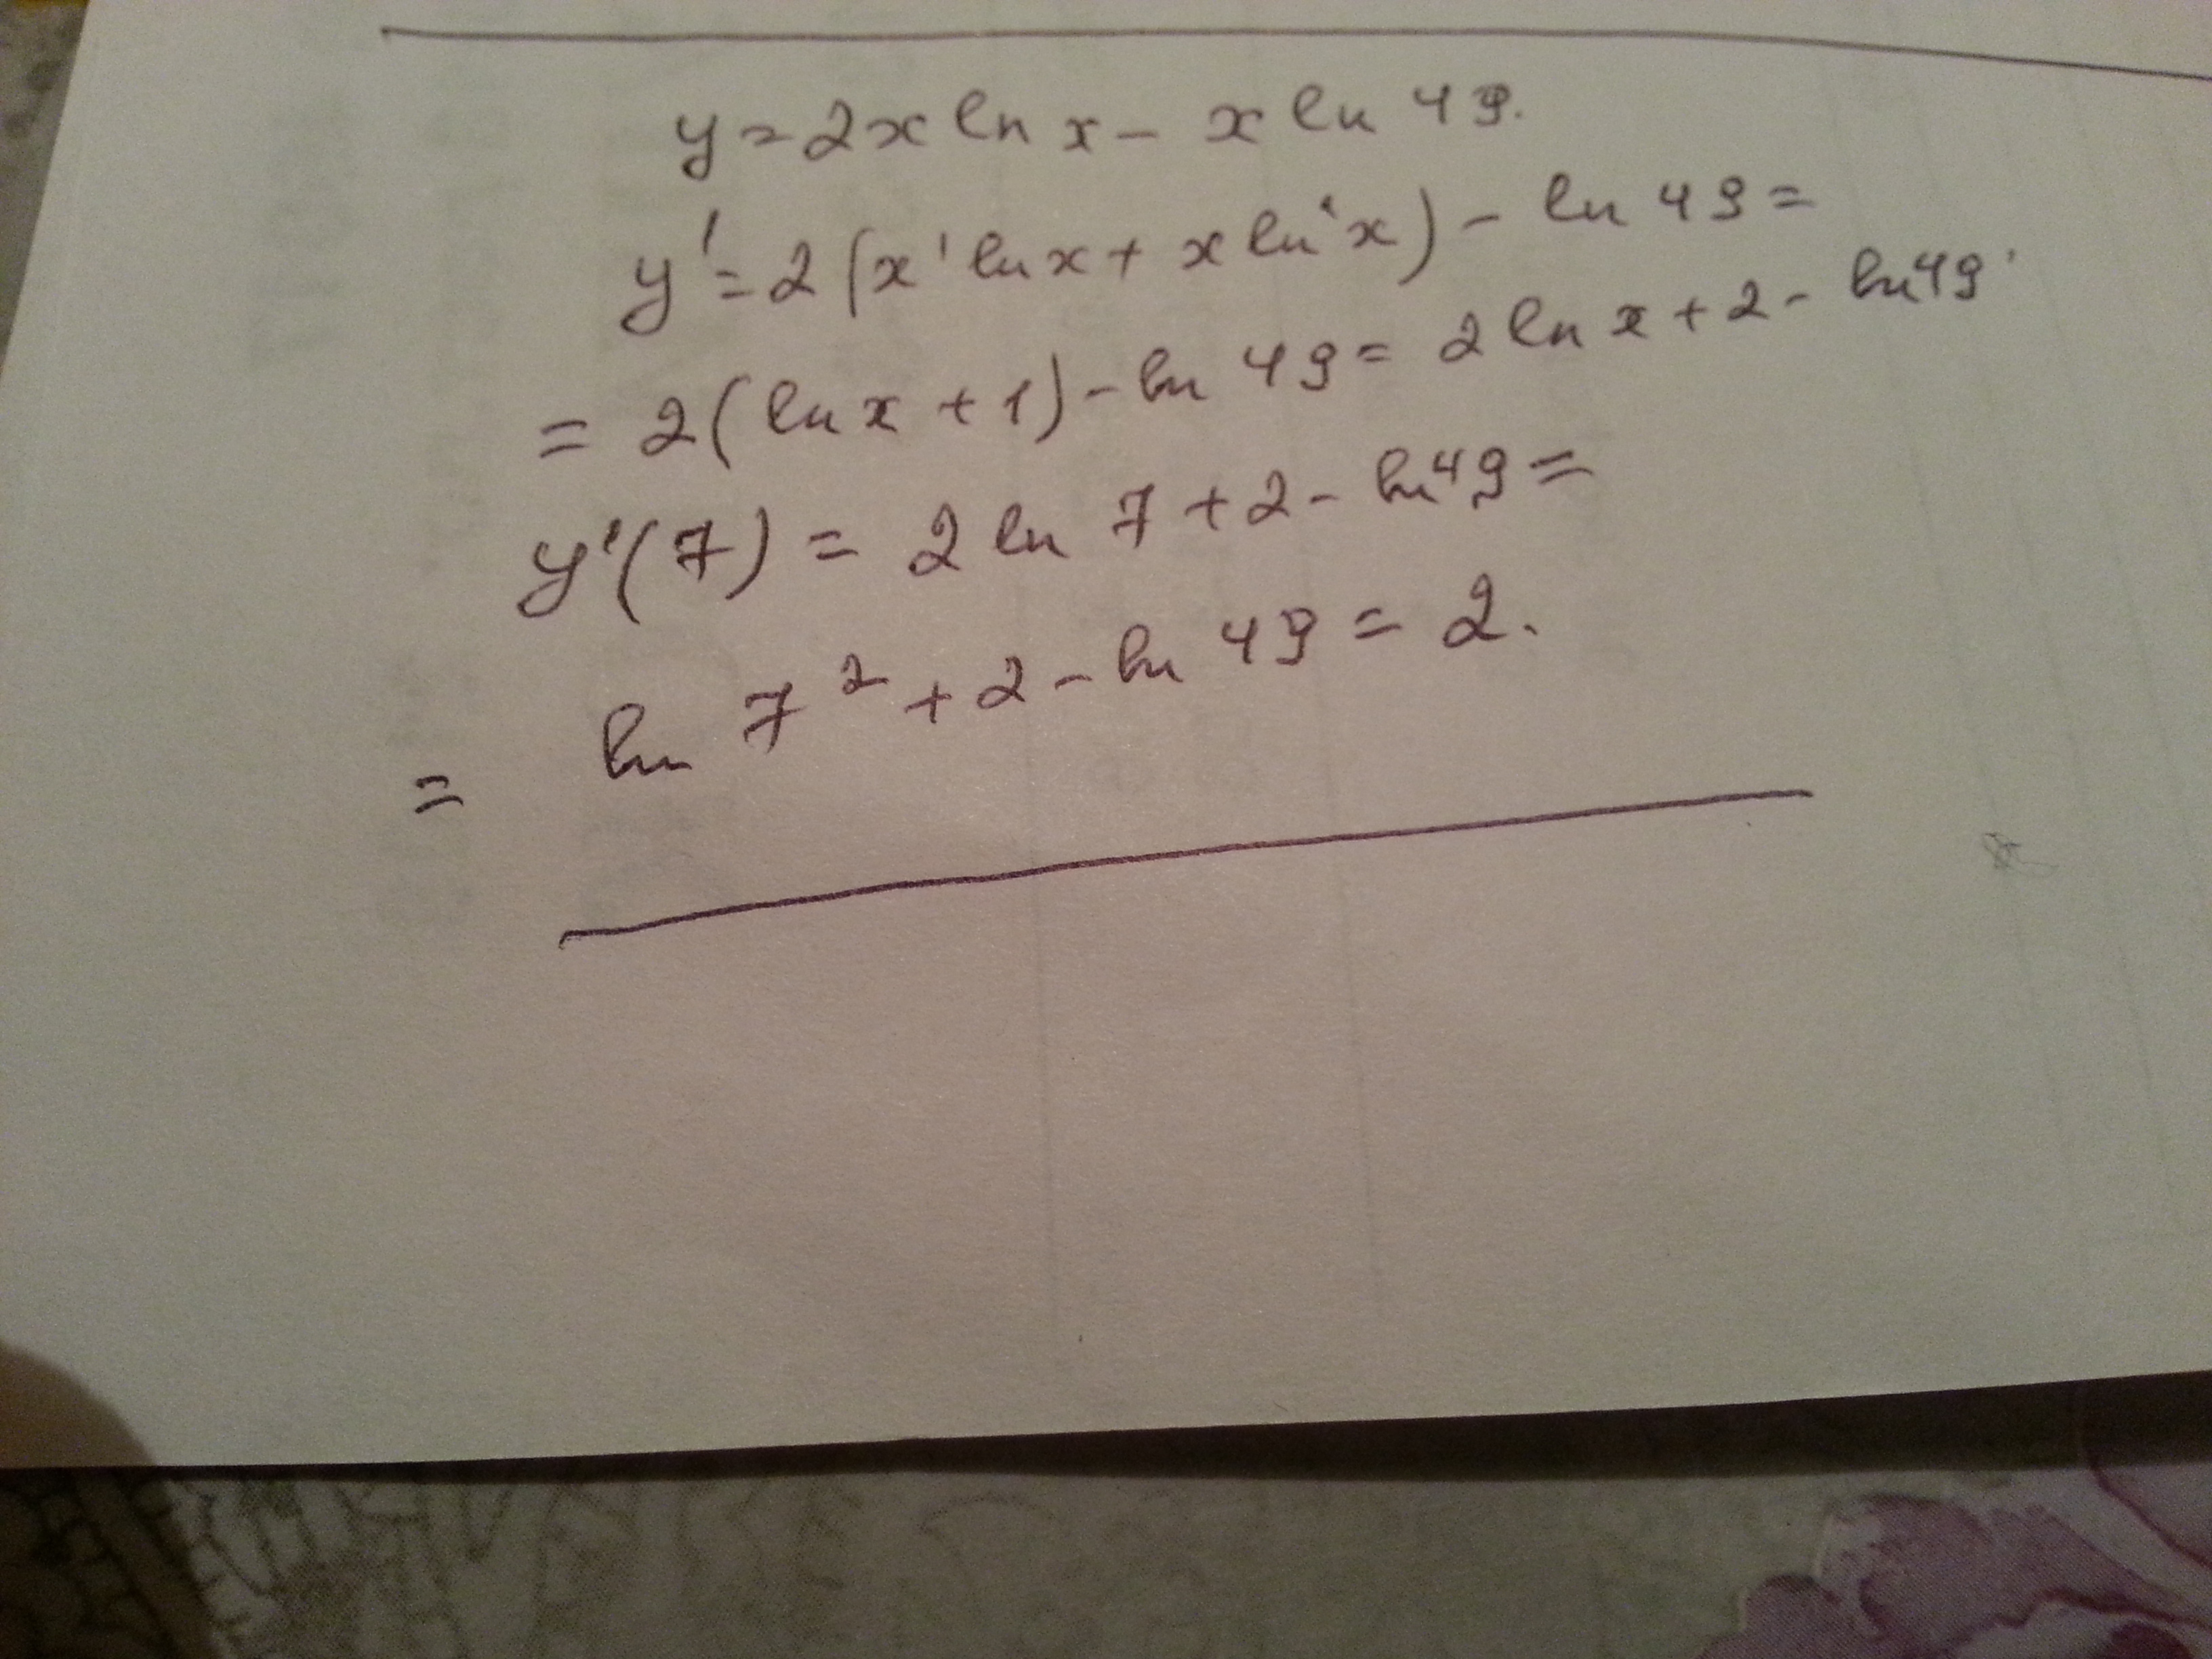 y = 2x ln x - x ln 49.
y' = 2 (x' ln x + x ln' x) - ln 49 =
= 2 (ln x + 1) - ln 49 = 2 ln x + 2 - ln 49.
y'(7) = 2 ln 7 + 2 - ln 49 =
= ln 7² + 2 - ln 49 = 2.